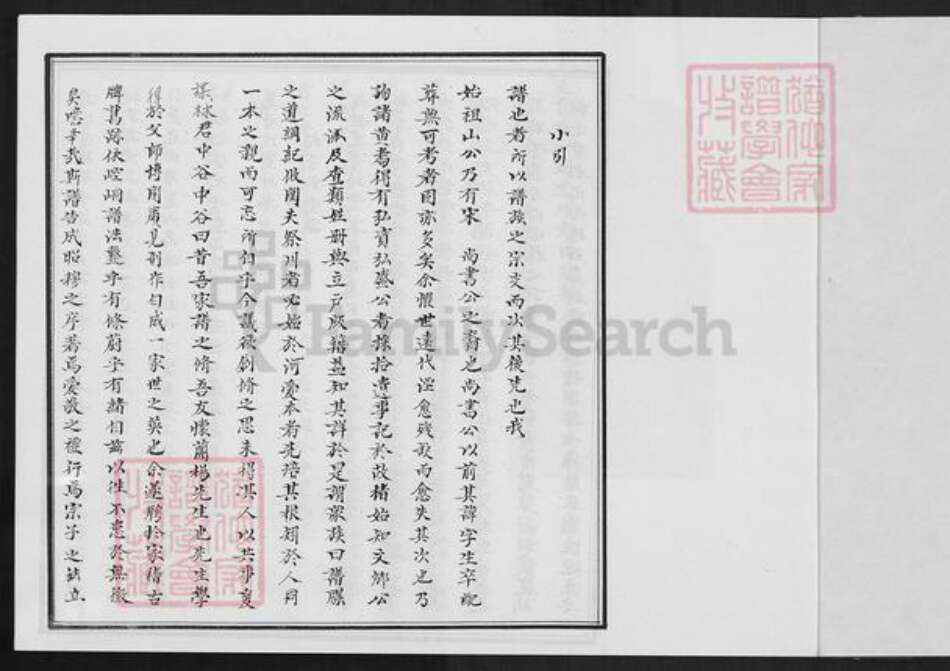 小引
譜也者所以譜族之宗支而次其後先也我
始祖山公乃有宋 尚書公之裔也尚書公以前其諱字生卒配
葬無可考者固亦多矣余懼世遠代湮愈殘缺而愈失其次也乃
詢諸黄耇得有弘寅弘盛公者採拾遺事記於故楮始知文鄉公
之流派及查類姓册與立戶版籍益知其詳於是謂衆族曰譜牒
之道綱紀攸關夫祭川者必始於河愛本者先培其根矧於人同
一本之親而可忘所自乎今議徵創修之思未得其人以共事爰
謀 君中谷中谷曰昔吾家譜之修吾友懷蘭楊先生也先生學
得於父師博聞廣見制作自成一家世之英也余遂聘於家稽古
牒舊 譜法 乎有條蔚乎有緒自茲以往不患於無徵
矣噫幸哉斯譜告成昭穆之序著焉愛敬之禮行焉宗子之法立
猶他家譜學會收藏
猶他家譜學會收藏
FamilySearch